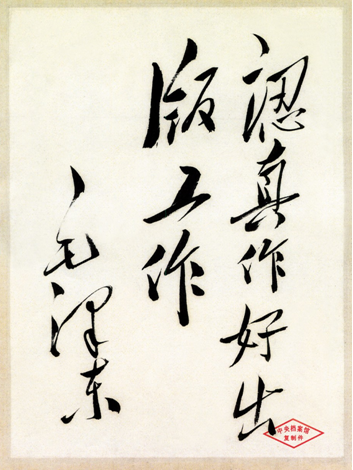 認真作好出
版工作
毛澤东
中央档案馆
复制件